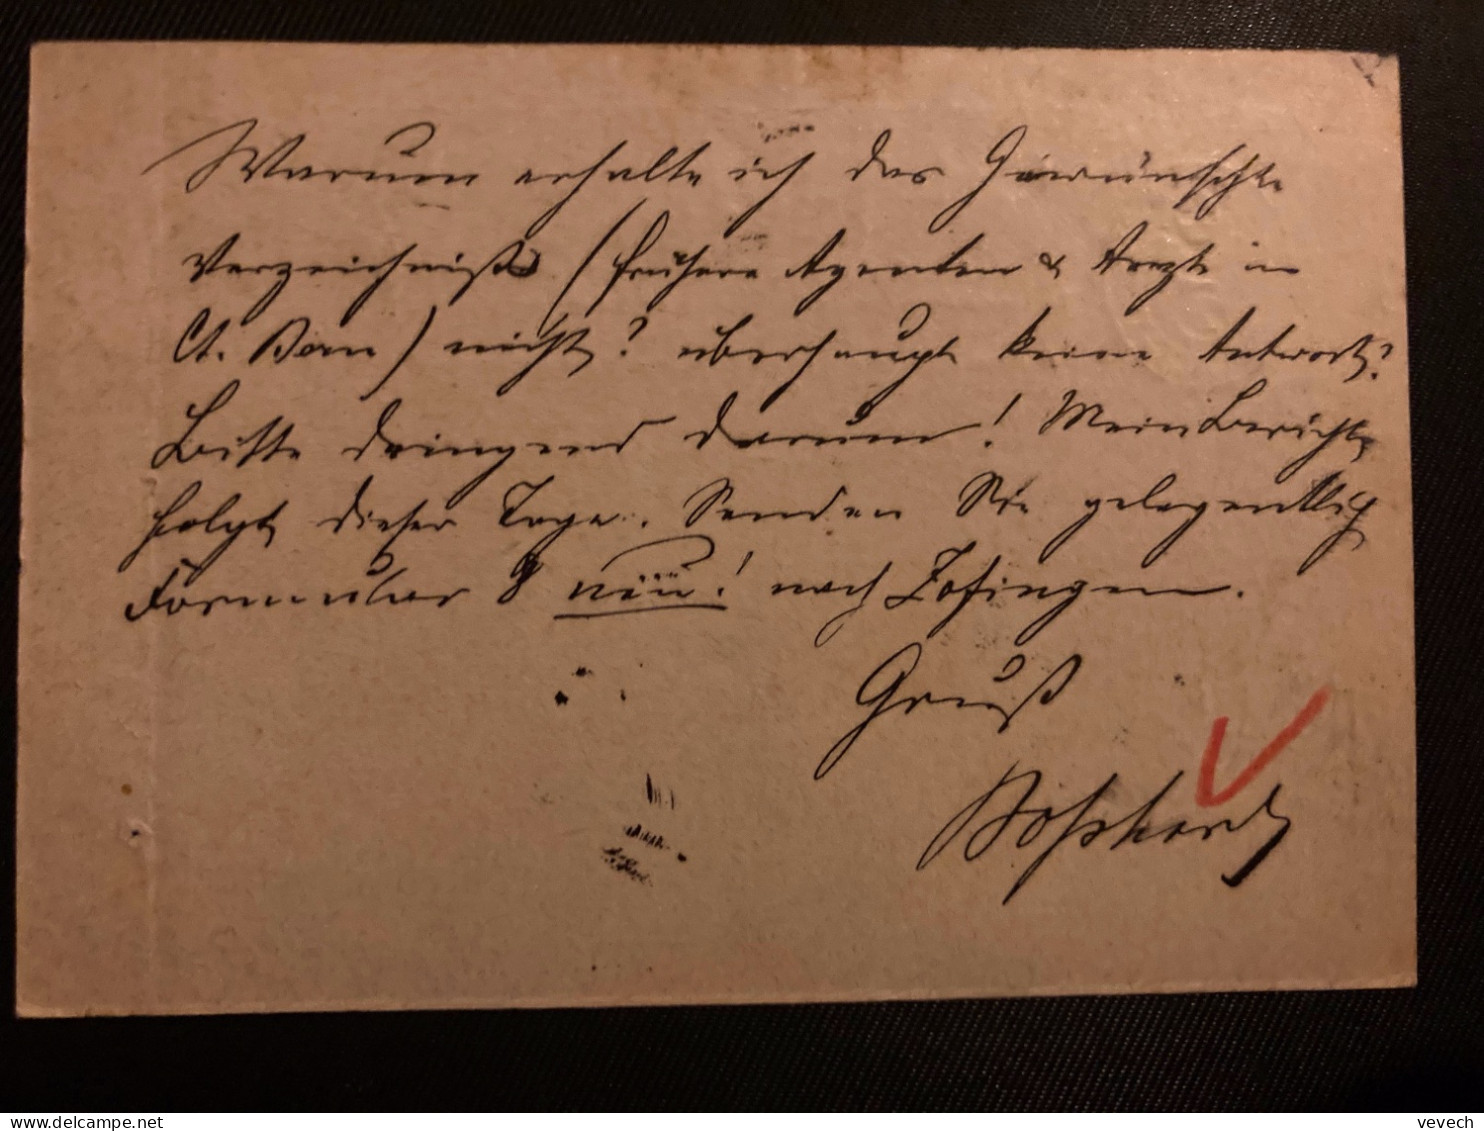 Warum erhalte ich das Gewünschte
Verzeichniß (frühere Agenten & Arzt in
Ct. Bern) nicht? überhaupt keine Antwort?
Bitte dringend darum! Mein Bericht
folgt dieser Tage. Senden Sie gelegentlich
Formular 8 neu! nach Zofingen.
Gruß
Boßhard
vevech